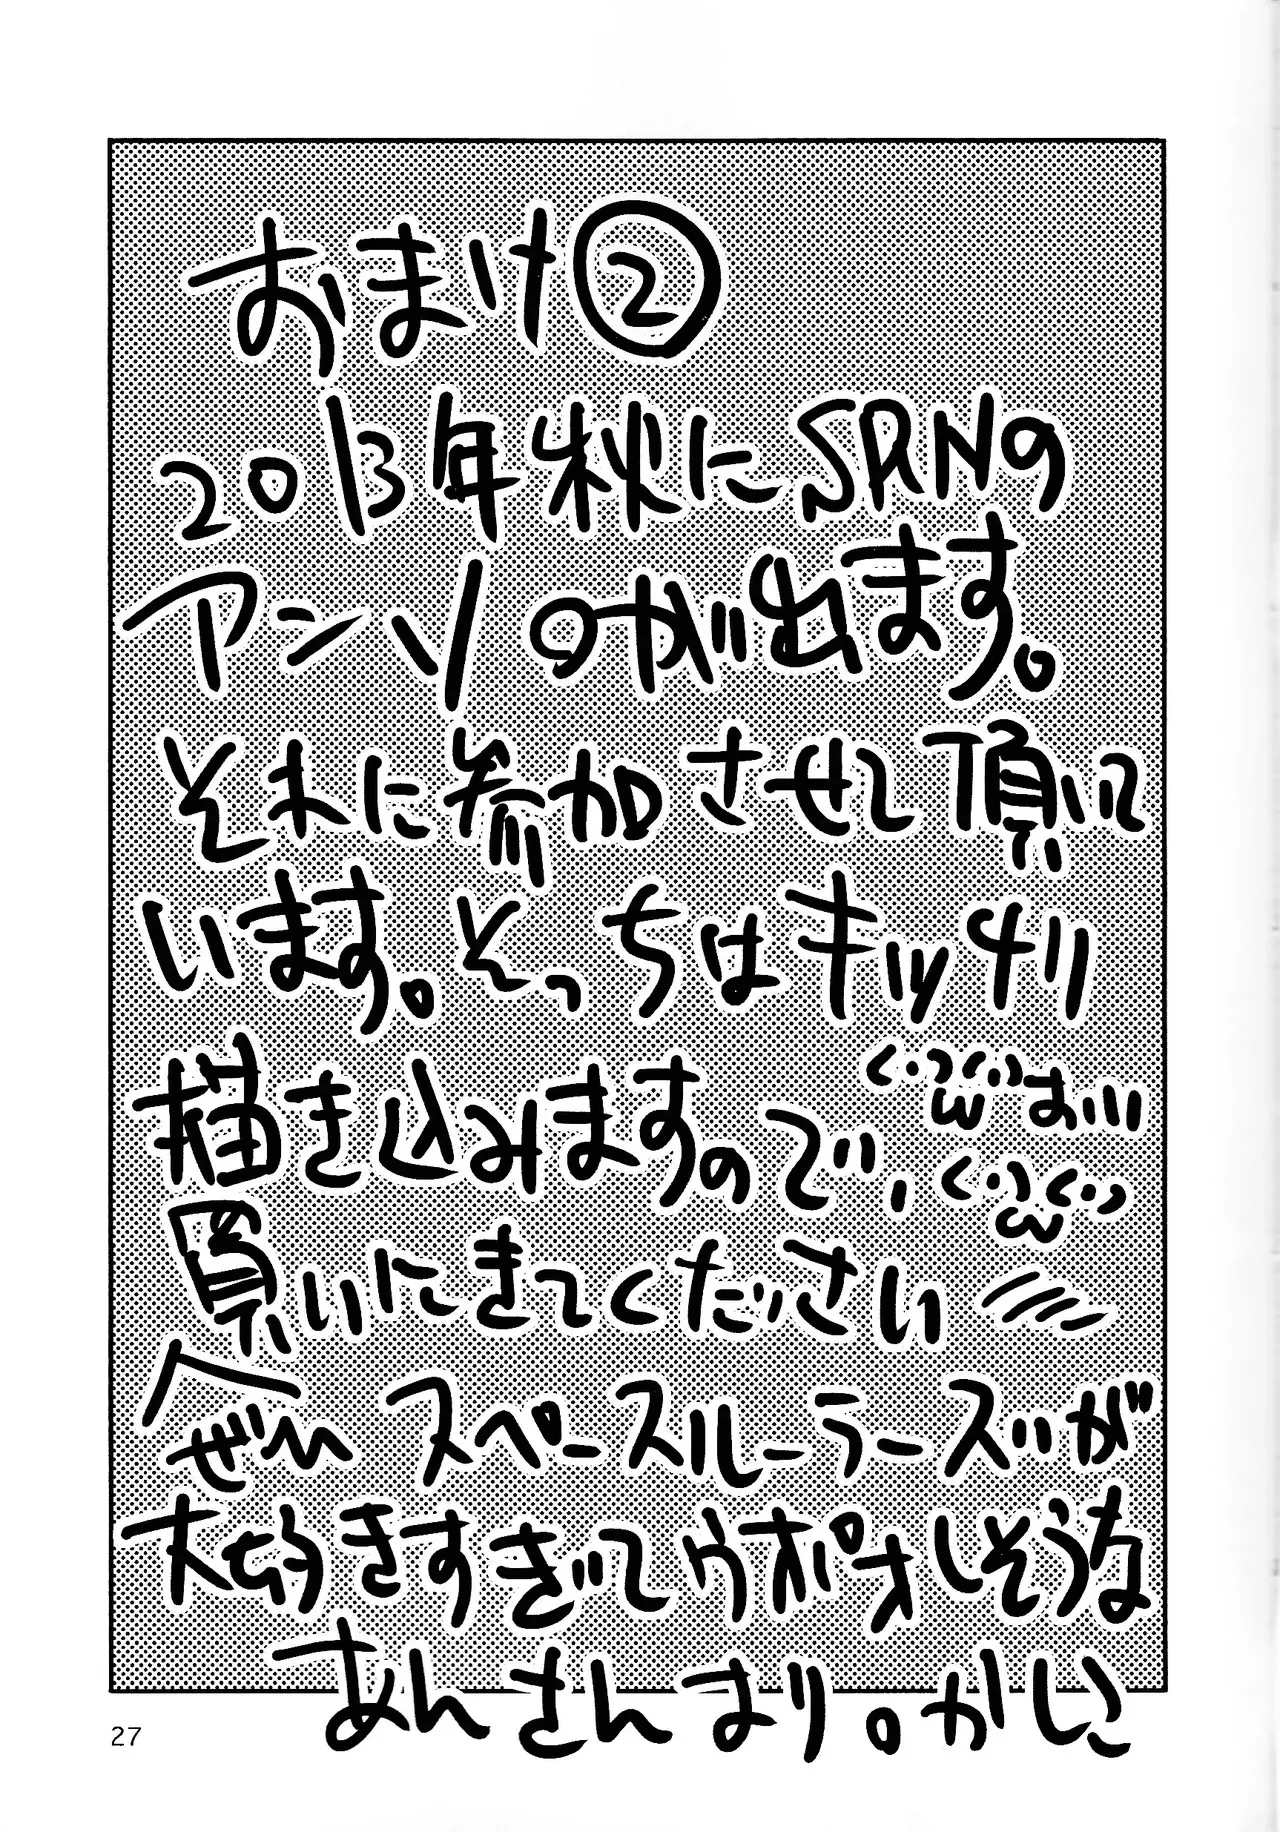 おまけ②
2013年秋にSRNの
アンソロが出ます。
それに参加させて頂いて
います。そっちはキッチリ
描き込みますので、
買いにきてくださいっ
ぜひ スペースルーラーズが
大好きすぎてウポオしそうな
あんさんより。かしこ
27